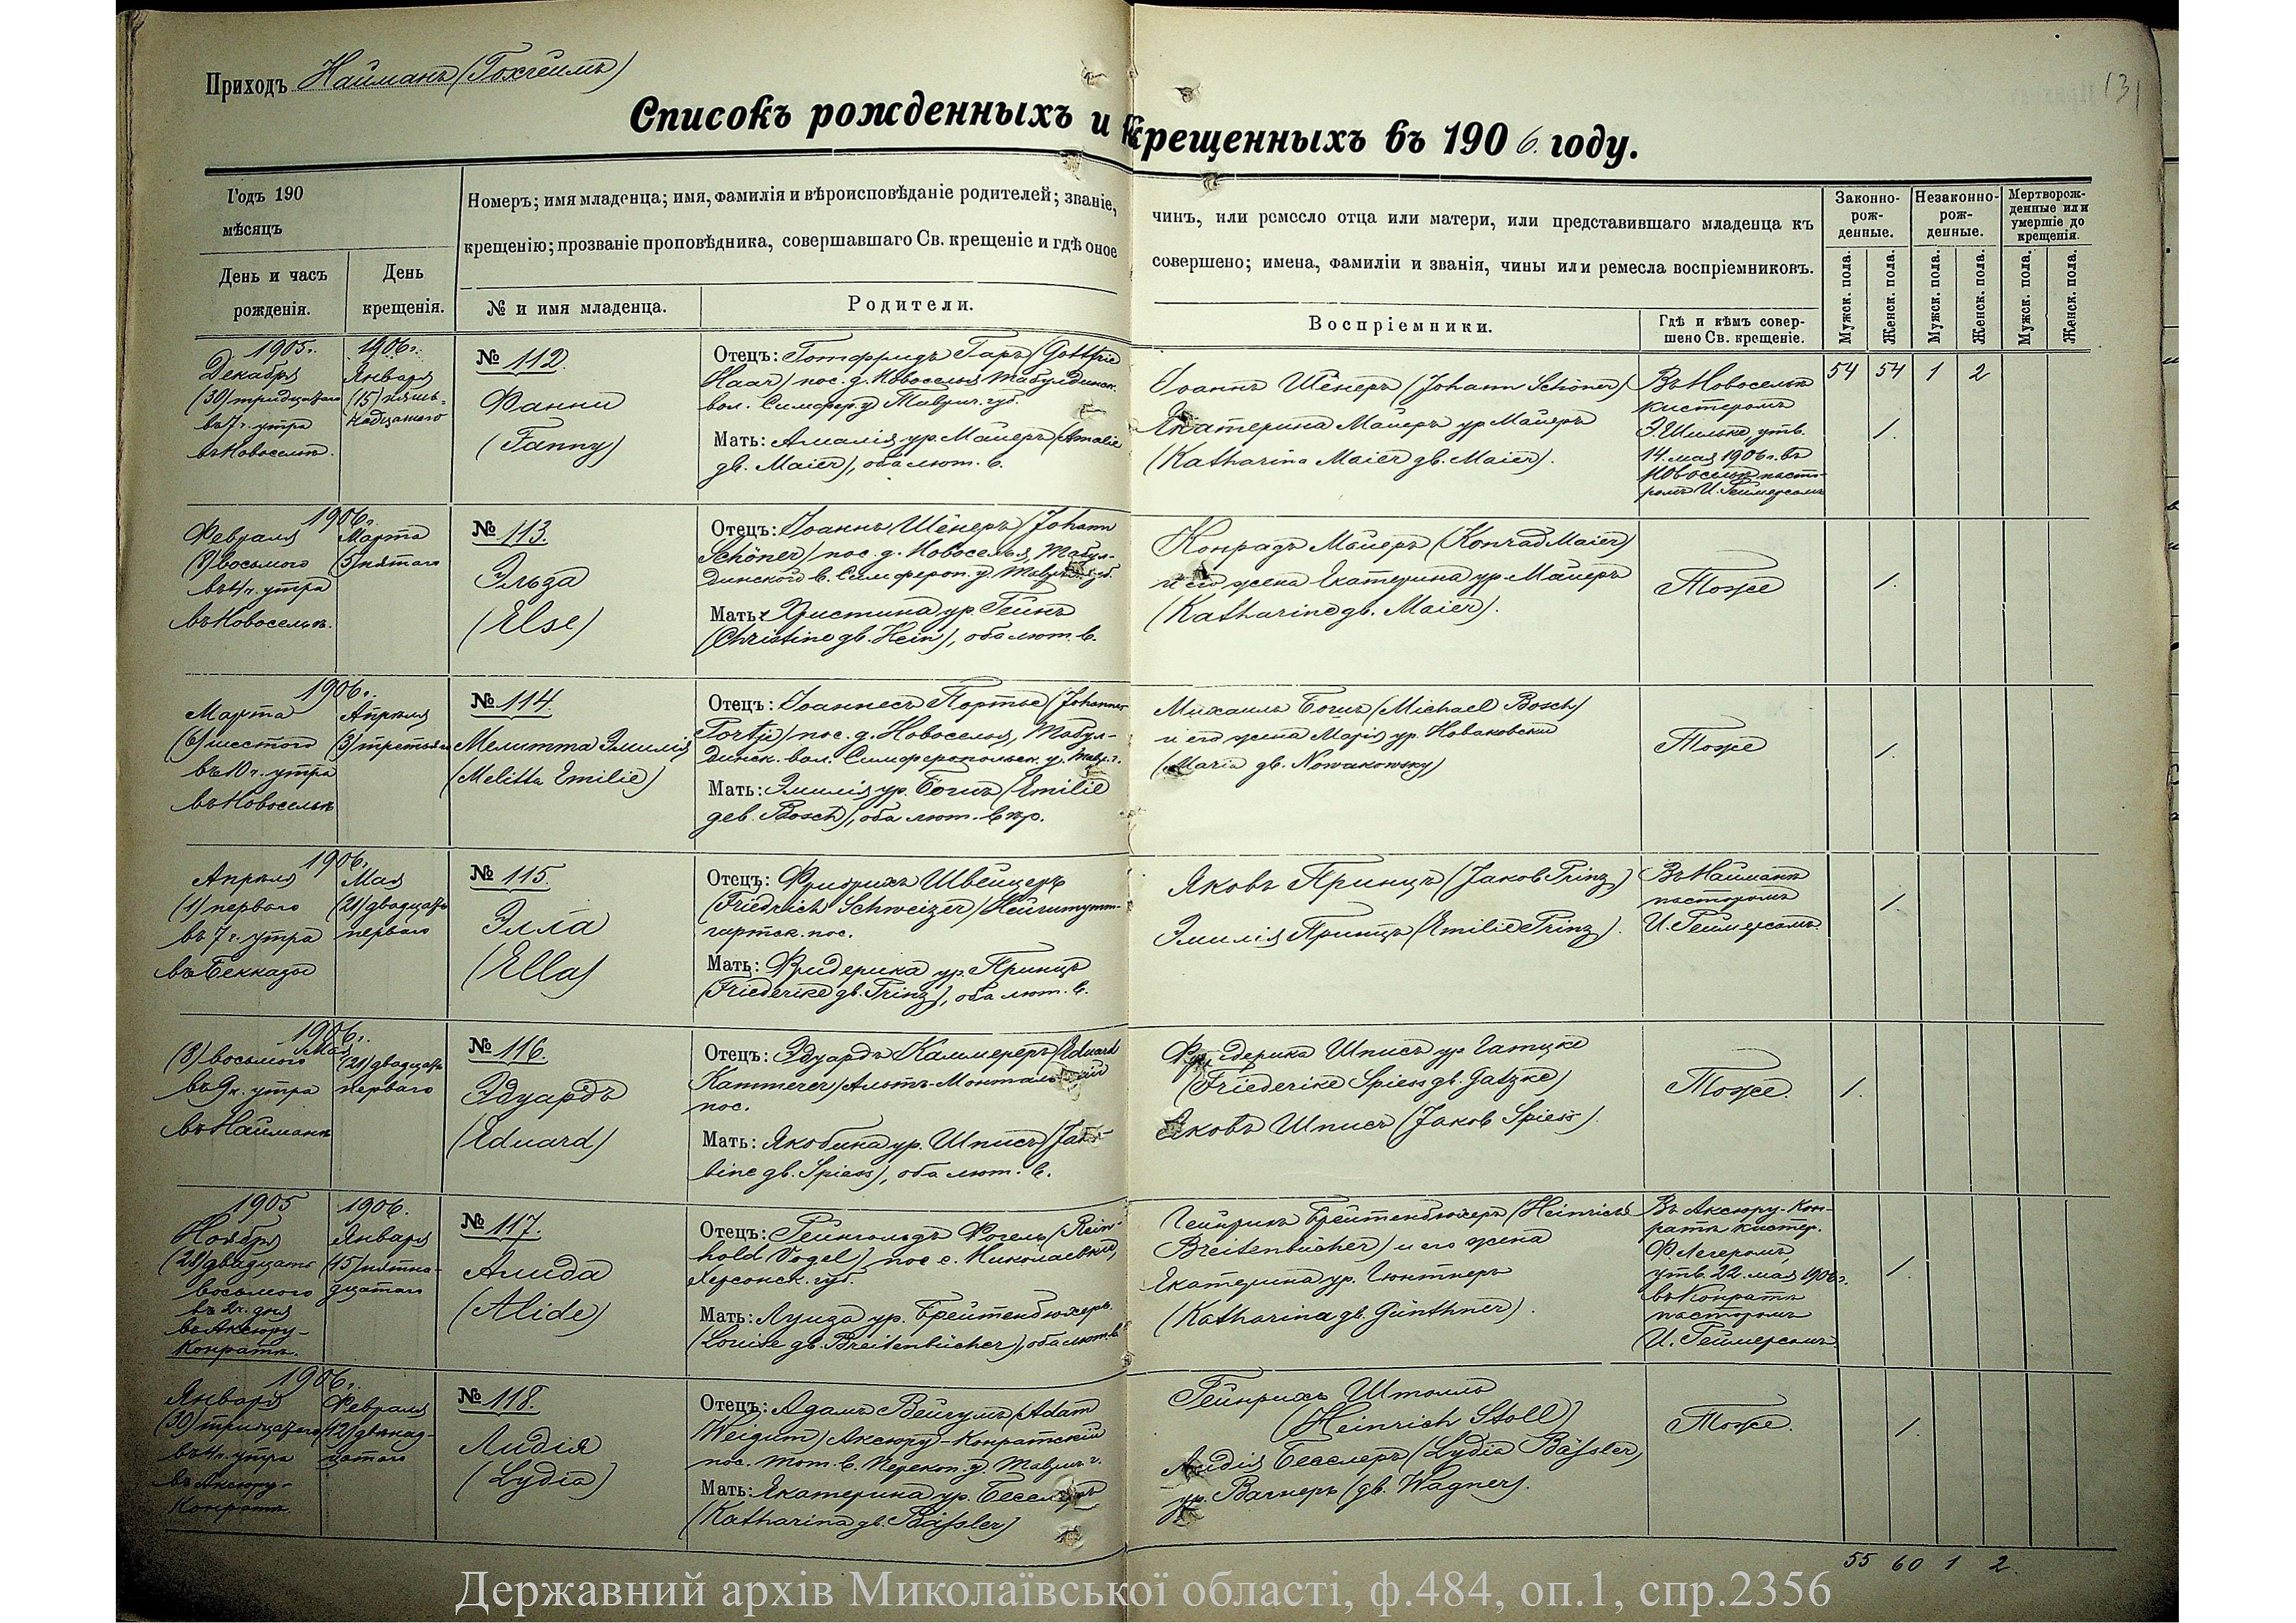 Приходъ Найманъ (Гохгеимъ)
131
Списокъ рожденныхъ и крещенныхъ въ 1906. году.
Годъ 190
мѣсяцъ
День и часъ
рожденія.
День
крещенія.
Номеръ; имя младенца; имя, фамилія и вѣроисповѣданіе родителей; званіе,
крещенію; прозваніе проповѣдника, совершавшаго Св. крещеніе и гдѣ оное
№ и имя младенца.
Родители.
чинъ, или ремесло отца или матери, или представившаго младенца къ
совершено; имена, фамиліи и званія, чины или ремесла воспріемниковъ.
Воспріемники.
Гдѣ и кѣмъ совер-
шено Св. крещеніе.
Законно-
рож-
денные.
Незаконно-
рож-
денные.
Мертворож-
денные или
умершіе до
крещенія.
Мужск. пола.
Женск. пола.
Мужск. пола.
Женск. пола.
Мужск. пола.
Женск. пола.
1905г.
Декабря
(30) тридцатаго
въ 7 ч. утра
въ Новоселье.
1906г.
Января
(15) пят-
надцатаго
№ 112.
Фанни
(Fanny)
Отецъ: Готфридъ Гаръ (Gottfrie
Haar) пос. д. Новоселья Табулдинск.
вол. Симфер. у. Таврич. губ.
Мать: Амалія ур. Маиеръ (Amalie
gb. Maier), оба лют. в.
Іоаннъ Шёнеръ (Johann Schöner)
Екатерина Маиеръ ур. Маиеръ
(Katharina Maier gb. Maier).
Въ Новосельѣ
кистеромъ
Э. Шильке утв.
14. мая 1906г. въ
Новосельѣ пасто-
ромъ И. Геимерсомъ
54 54 1 2
1.
1906г.
Февраля
(8) восьмого
въ 4 ч. утра
въ Новосельѣ.
Марта
(5) пятаго
№ 113.
Эльза
(Else)
Отецъ: Іоаннъ Шёнеръ (Johann
Schöner) пос. д. Новоселья, Табул-
динской в. Симфероп. у. Таврич. губ.
Мать: Христина ур. Геинъ
(Christine gb. Hein), оба лют. в.
Конрадъ Маиеръ (Konrad Maier)
и его жена Екатерина ур. Маиеръ
(Katharine gb. Maier).
Тоже
1.
1906г.
Марта
(6) шестого
въ 10 ч. утра
въ Новосельѣ
Апрѣля
(3) третьяго
№ 114.
Мелитта Эмилія
(Melitta Emilie)
Отецъ: Іоаннесъ Портье (Johannes
Portje) пос. д. Новоселья, Табул-
динск. вол. Симферопольск. у. Тавр. г.
Мать: Эмилія ур. Бошъ (Emilie
geb. Bosch), оба лют. вѣр.
Михаилъ Бошъ (Michael Bosch)
и его жена Марія ур. Новаковски
(Maria gb. Nowakowsky)
Тоже
1.
1906г.
Апрѣля
(1) перваго
въ 7 ч. утра
въ Бекказы
Мая
(21) двадцать
перваго
№ 115.
Элла
(Ella)
Отецъ: Фридрихъ Швеицеръ
(Friedrich Schweizer) Неиштутт-
гартск. пос.
Мать: Фридерика ур. Принцъ
(Friederike gb. Prinz), оба лют. в.
Яковъ Принцъ (Jakob Prinz)
Эмилія Принцъ (Emilie Prinz).
Въ Найманѣ
пасторомъ
И. Геимерсомъ.
1.
1906г.
Мая
(8) восьмого
въ 9 ч. утра
въ Найманѣ
(21) двадцать
перваго
№ 116.
Эдуардъ
(Eduard)
Отецъ: Эдуардъ Каммереръ (Eduard
Kammerer) Альтъ-Монтальскій
пос.
Мать: Якобина ур. Шписъ (Jako-
bine gb. Spiess), оба лют. в.
Фридерика Шписъ ур. Гатцке
(Friederike Spiess gb. Gatzke)
Яковъ Шписъ (Jakob Spiess).
Тоже.
1.
1905
Ноября
(28) двадцать
восьмого
въ 2 ч. дня
въ Аксюру-
Конратѣ.
1906.
Января
(15) пятна-
дцатаго
№ 117.
Алида
(Alide)
Отецъ: Реингольдъ Фогель (Rein-
hold Vogel) пос. с. Николаевки,
Херсонск. губ.
Мать: Луиза ур. Бреитенбюхеръ
(Louise gb. Breitenbücher), оба лют. в.
Геинрихъ Бреитенбюхеръ (Heinrich
Breitenbücher) и его жена
Екатерина ур. Гюнтнеръ
(Katharina gb. Günthner).
Въ Аксюру-Кон-
ратѣ кистер.
Ф. Легеромъ,
утв. 22. мая 1906г.
въ Конратѣ
пасторомъ
И. Геимерсомъ.
1.
1906г.
Января
(30) тридцатаго
въ 4 ч. утра
въ Аксюру-
Конратѣ.
Февраля
(12) двѣнад-
цатаго
№ 118.
Лидія
(Lydia)
Отецъ: Адамъ Веигумъ (Adam
Weigum) Аксюру-Конратскій
пос. тот. в. Перекоп. у. Таврич. г.
Мать: Екатерина ур. Бесслеръ
(Katharina gb. Bäßler)
Геинрихъ Штолль
(Heinrich Stoll)
Лидія Бесслеръ (Lydia Bäßler)
ур. Вагнеръ (gb. Wagner).
Тоже.
1.
55 60 1 2.
Державний архів Миколаївської області, ф.484, оп.1, спр.2356